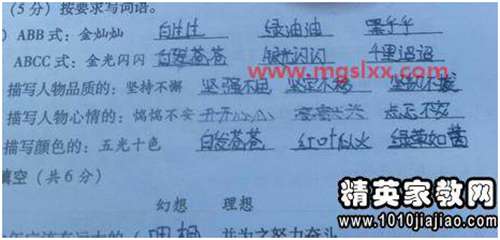 (5分) 按要求写词语。
) ABB 式：金灿灿 白生生 绿油油 黑乎乎
ABCC 式：金光闪闪 白发苍苍 银光闪闪 千里迢迢
www.mgslxx.com
描写人物品质的：坚持不懈 坚强不屈 坚定不移 坚韧不拔
描写人物心情的：惴惴不安
描写颜色的：五光十色 白发苍苍 红叶似火 绿草如茵
填空 (共6分)
幻想 理想
并为之努力奋斗
精英家教网
www.1010jiajiao.com